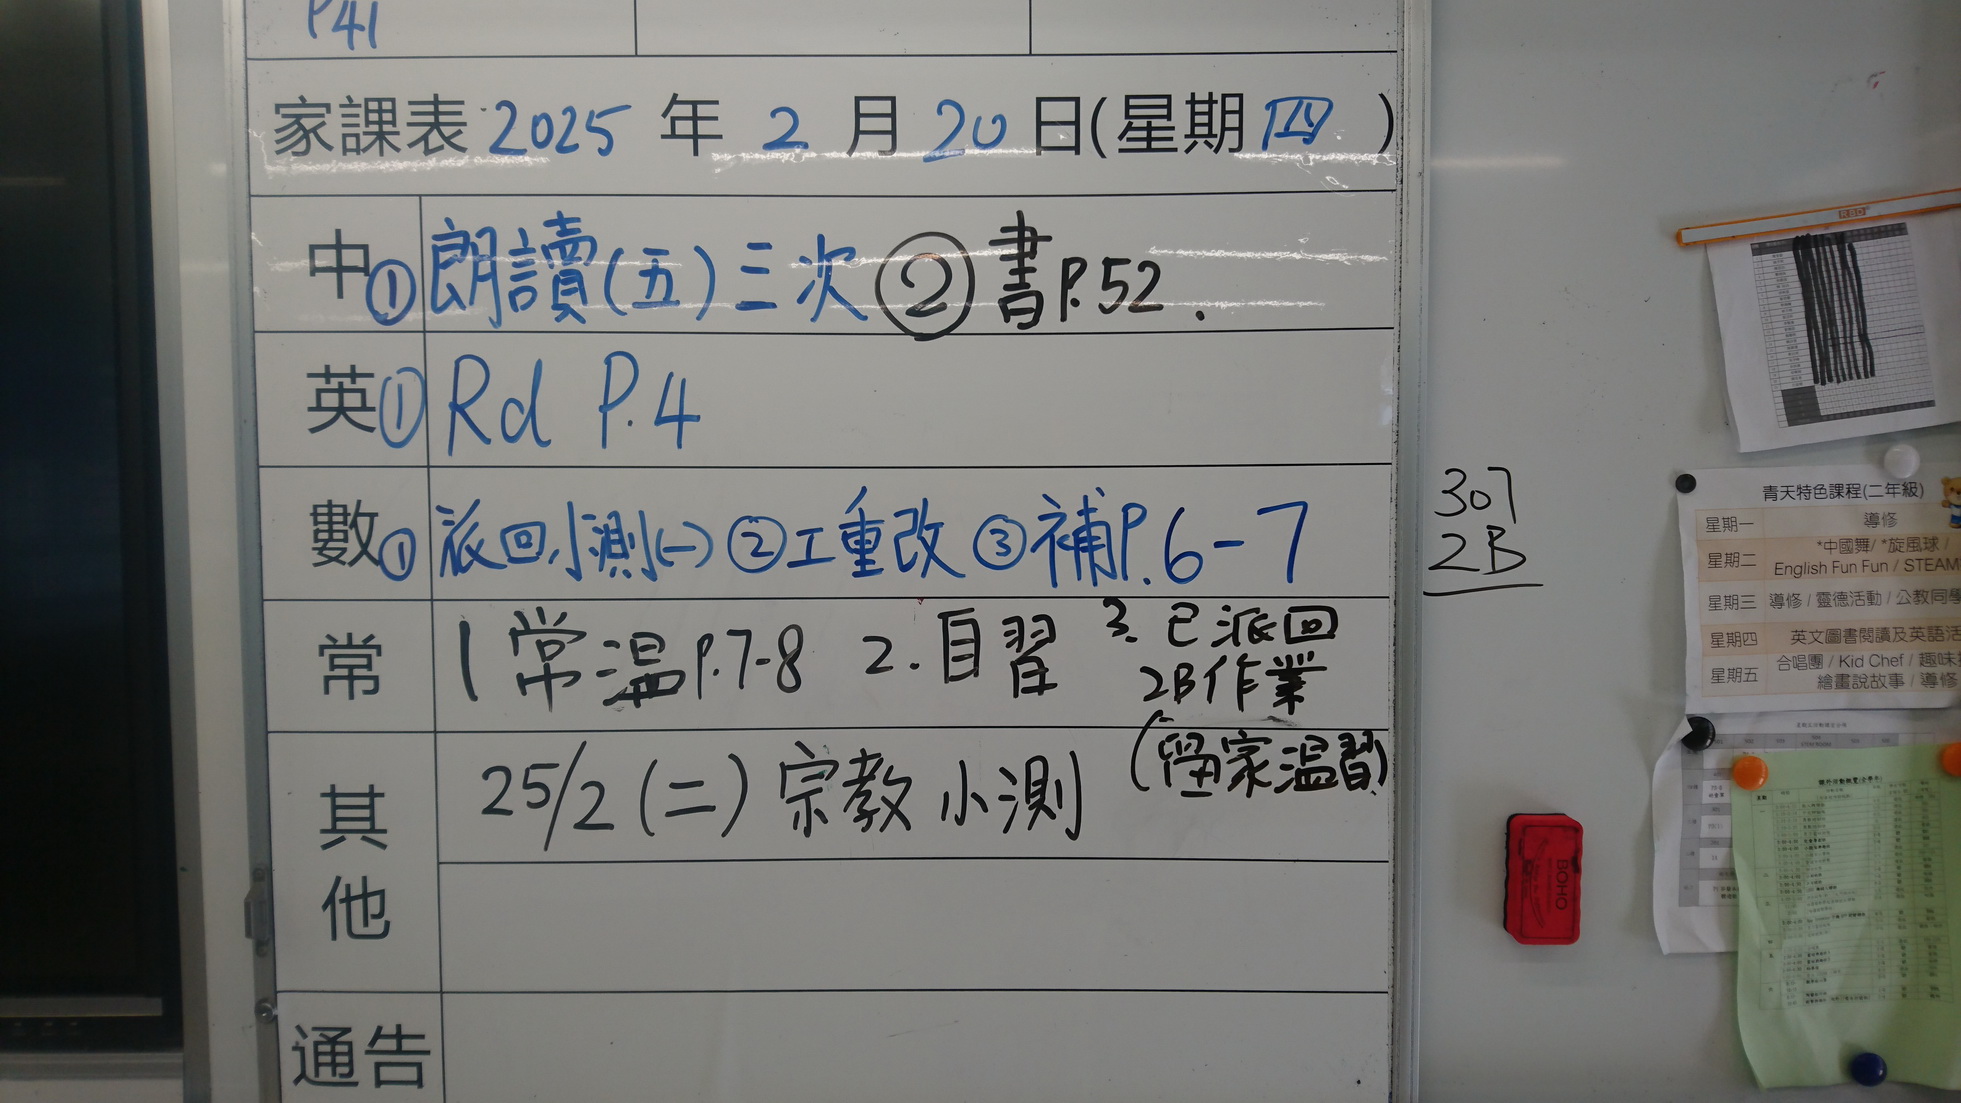 P41
家課表 2025 年 2 月 20 日(星期 四 )
中 ① 朗讀(五)三次 ② 書P.52.
英 ① Rd P.4
數 ① 派回小測(一) ② 工重改 ③ 補P.6-7
常 1 常溫P.7-8 2. 自習 3. 已派回
2B作業
(留家溫習)
其他 25/2 (二) 宗教 小測
通告
307
2B
RBD
青天特色課程(二年級)
星期一 導修
星期二 *中國舞/ *旋風球 /
English Fun Fun / STEAM
星期三 導修 / 靈德活動 / 公教同學
星期四 英文圖書閱讀及英語活
星期五 合唱團 / Kid Chef / 趣味
繪畫說故事 / 導修
BOHO